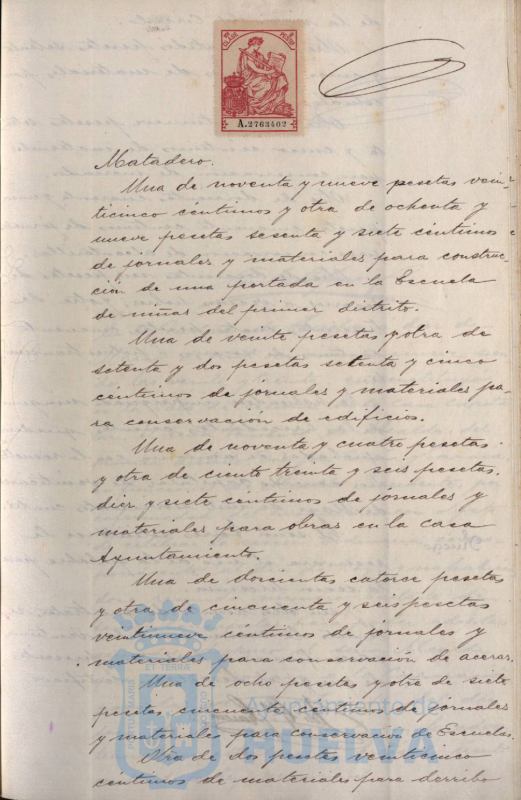 A.2763402
Matadero.
Una de noventa y nueve pesetas vein-
ticinco céntimos y otra de ochenta y
nueve pesetas sesenta y siete céntimos
de jornales y materiales para construc-
ción de una portada en la Escuela
de niñas del primer distrito.
Una de veinte pesetas y otra de
setenta y dos pesetas setenta y cinco
céntimos de jornales y materiales pa-
ra conservación de edificios.
Una de noventa y cuatro pesetas
y otra de ciento treinta y seis pesetas
diez y siete céntimos de jornales y
materiales para obras en la casa
Ayuntamiento.
Una de doscientas catorce pesetas
y otra de cincuenta y seis pesetas
veintinueve céntimos de jornales y
materiales para conservación de aceras.
Una de ocho pesetas y otra de siete
pesetas cincuenta céntimos de jornales
y materiales para conservación de Escuelas.
Otra de dos pesetas veinticinco
céntimos de materiales para derribo
Ayuntamiento de
HUELVA